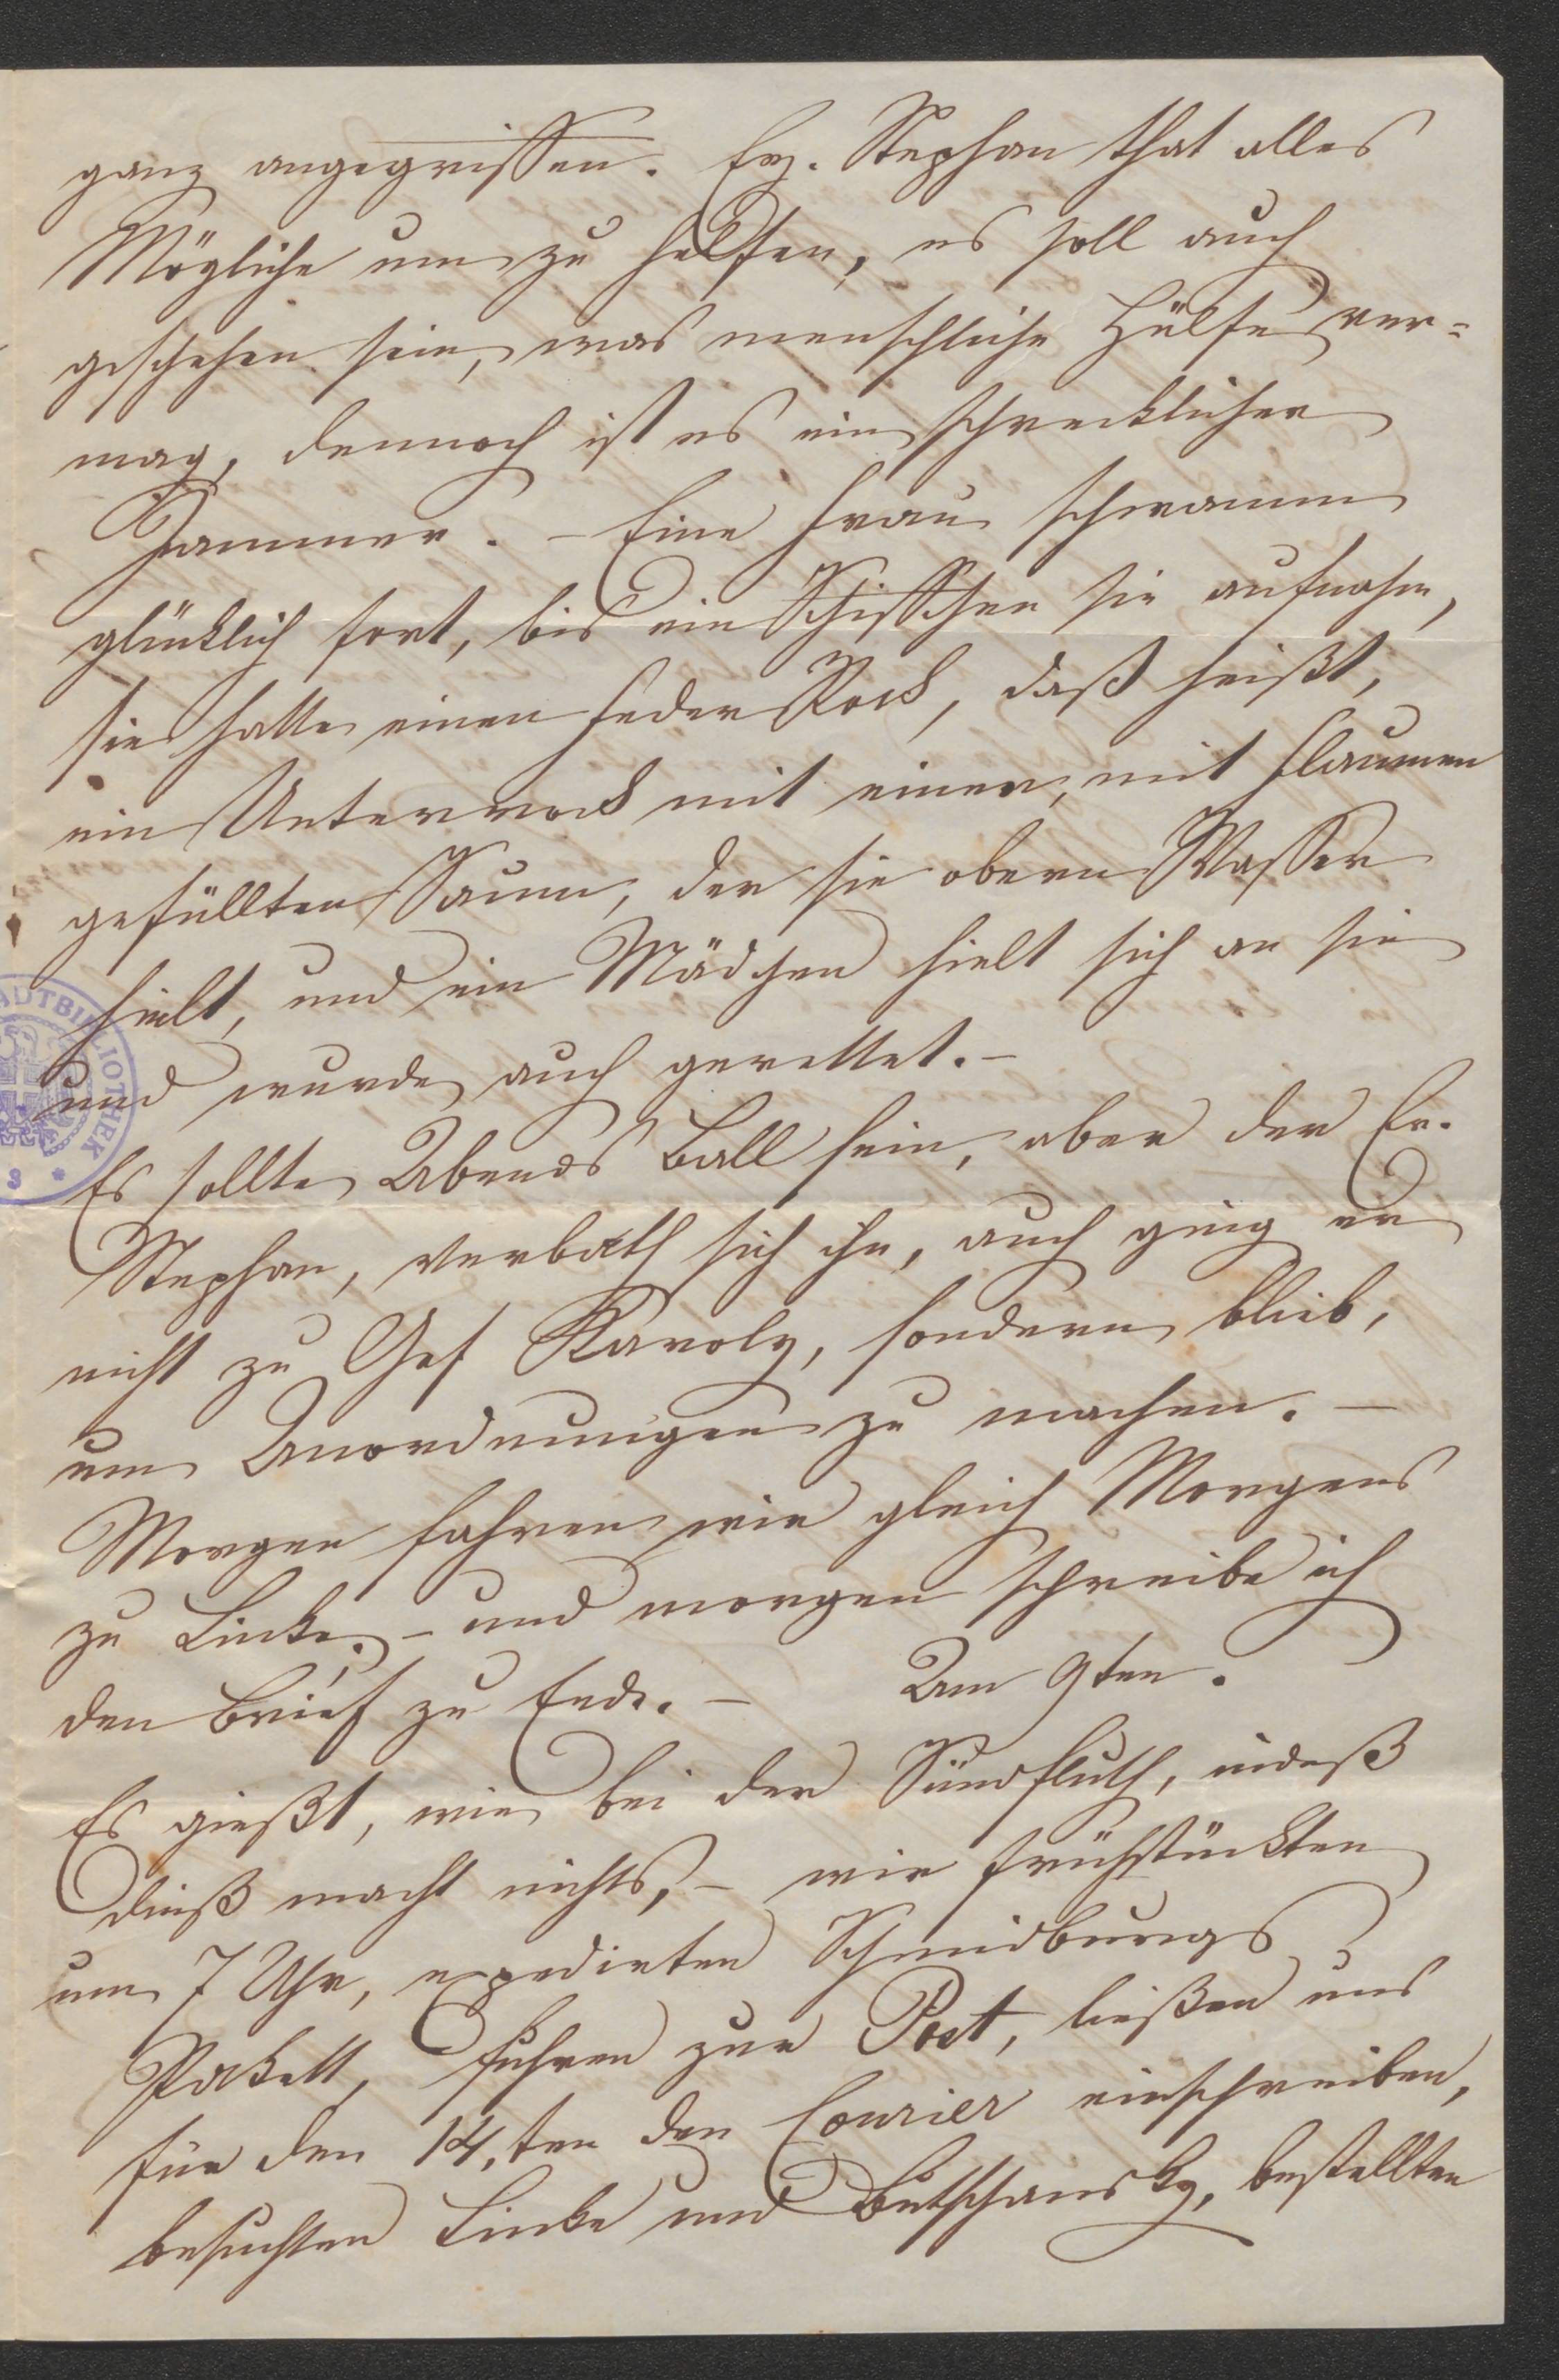 ganz angegriffen. Erz. Stephan that alles
Mögliche um zu helfen, es soll auch
geschehen sein, was menschliche Hülfe ver=
mag, dennoch ist es ein schrecklicher
Jammer. – Eine Frau schwamm
glücklich fort, bis ein Schiffchen sie aufnahm,
sie hatte einen Feder Rock, daß heißt,
ein Unterrock mit einer, mit Flaumen
gefüllten Saum, der sie obern Wasser
hielt, und ein Mädchen hielt sich an sie
und wurde auch gerettet. –
Es sollte Abends Ball sein, aber der Er.
Stephan, verbath sich ihn, auch ging er
nicht zu Gf Karoly, sondern blieb,
um Anordnungen zu machen. –
Morgen fahren wir gleich Morgens
zu Linke. – und morgen schreibe ich
den Brief zu Ende. – Am 9ten.
Es gießt, wie bei der Sündfluth, indeß
dieß macht nichts, – wir frühstückten
um 7 Uhr, expedirten Schmidburgs
Pakett, fuhren zur Post, ließen uns
für den 14,ten den Courier einschreiben,
besuchten Linke und Butschansky, bestellten
STADTBIBLIOTHEK